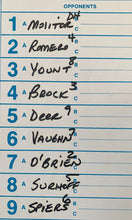 OPPONENTS
1 A MOLITOR DH B C
2 A ROMERO 4 B C
3 A YOUNT 8 B C
4 A BROCK 3 B C
5 A DEER 9 B C
6 A VAUGHN 7 B C
7 A O'BRIEN 2 B C
8 A SURHOFF 5 B C
9 A SPIERS 6 B C